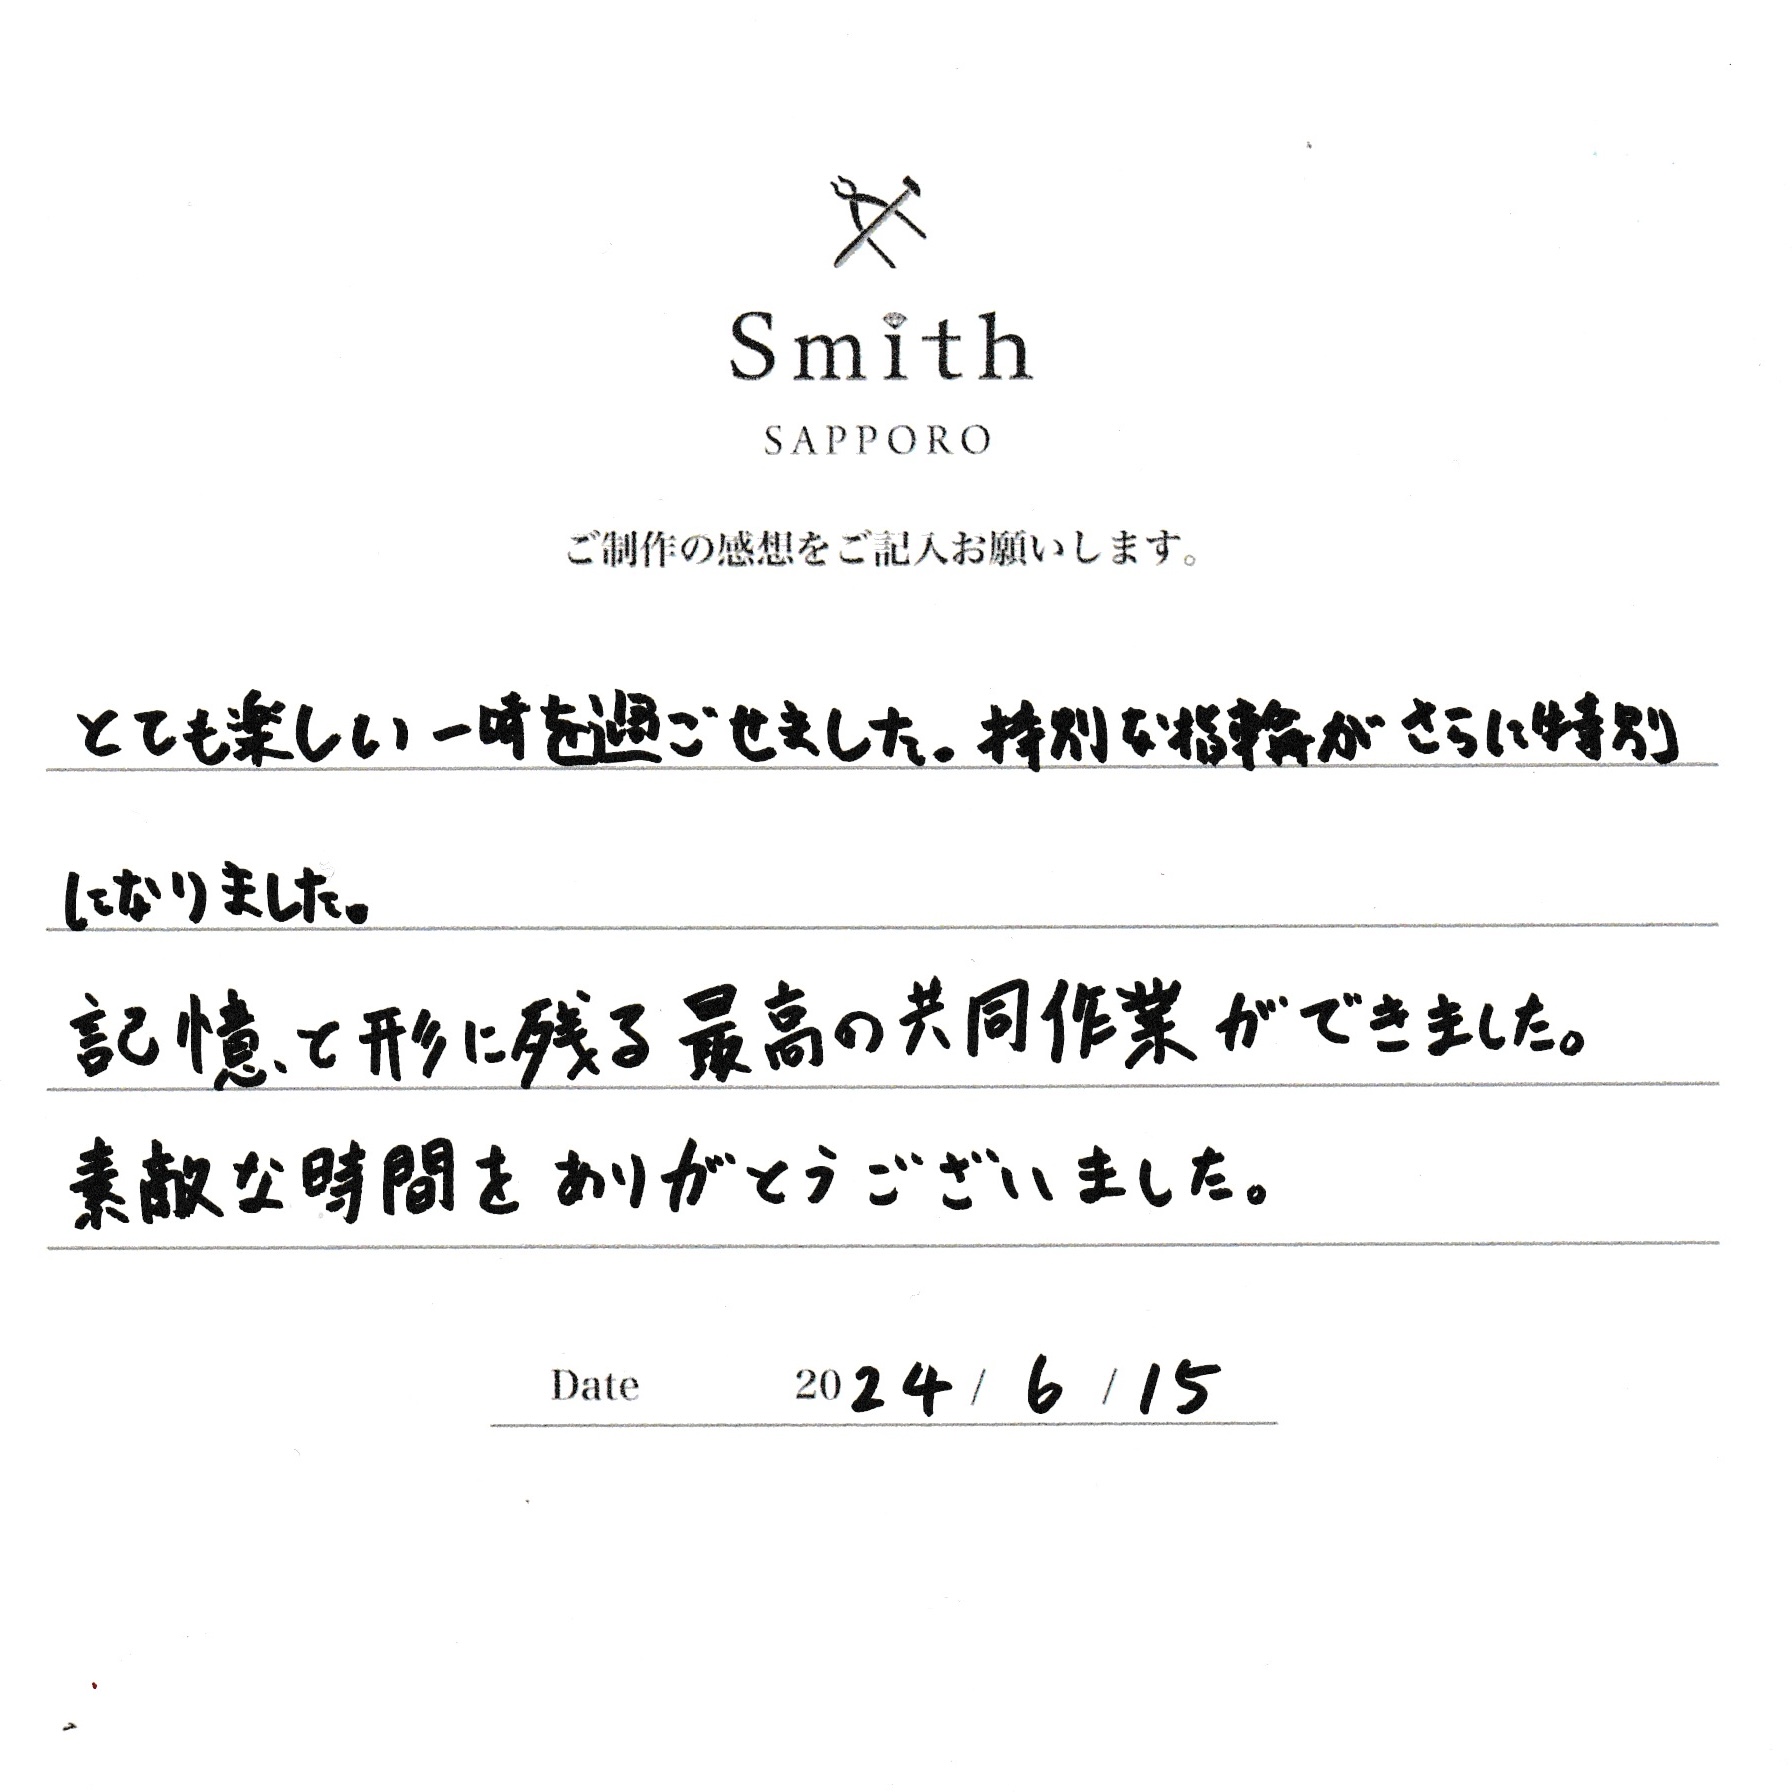 Smith
SAPPORO
ご制作の感想をご記入お願いします。
とても楽しい一時を過ごせました。特別な指輪がさらに特別
になりました。
記憶と形に残る最高の共同作業ができました。
素敵な時間をありがとうございました。
Date 2024/6/15